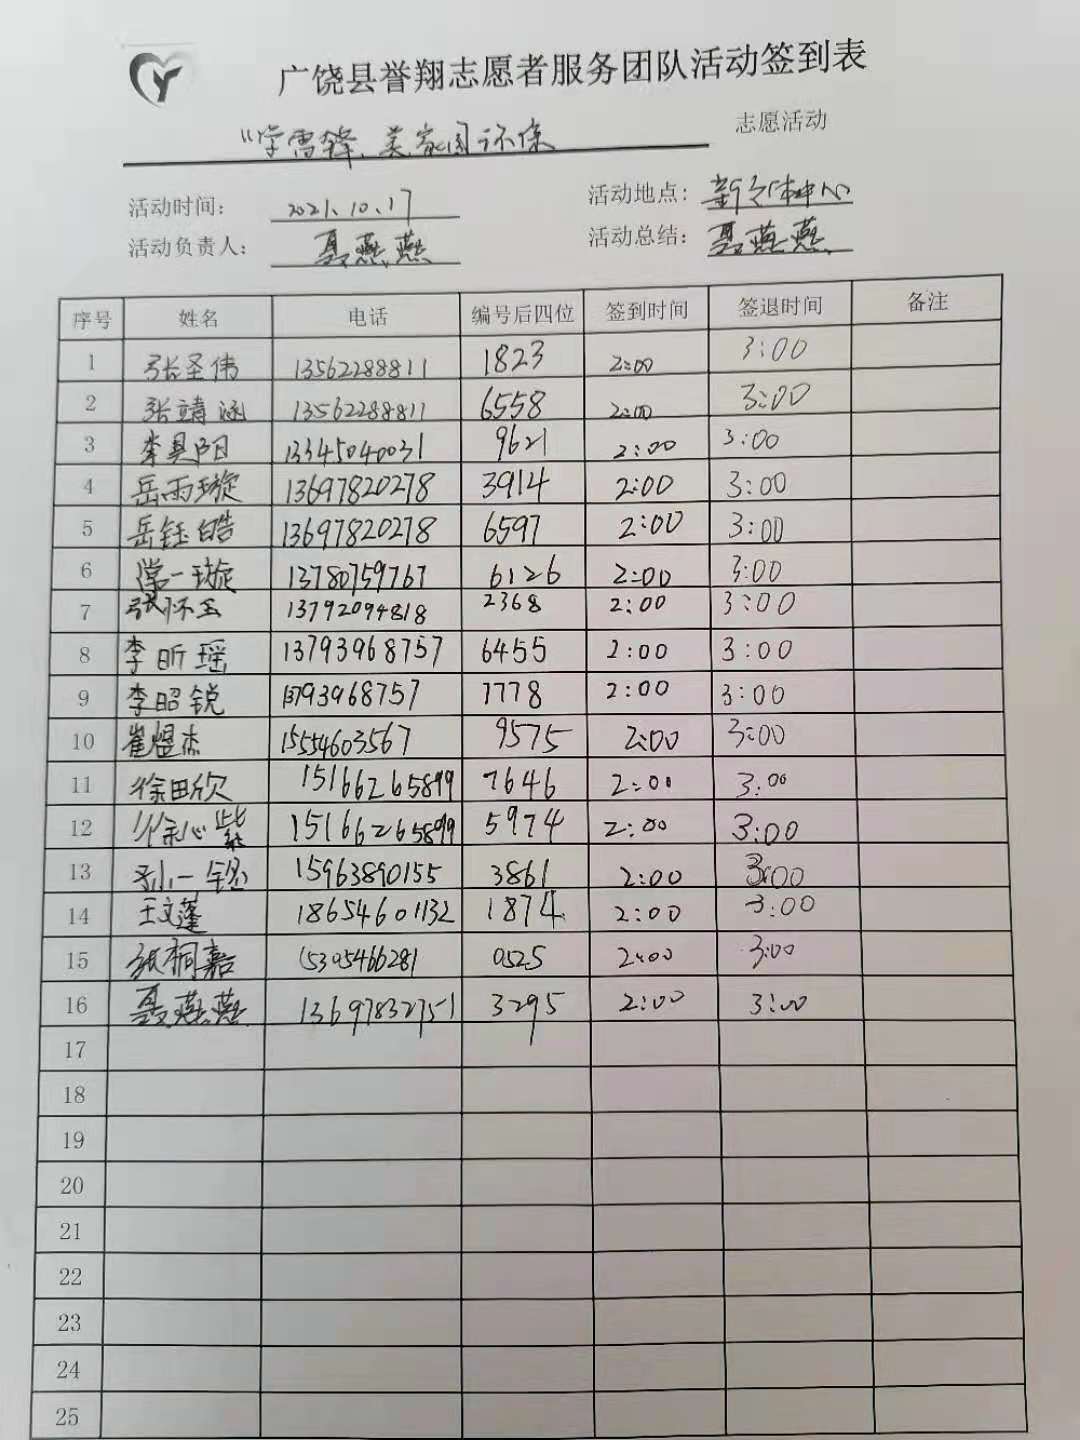 广饶县誉翔志愿者服务团队活动签到表
"学雷锋、美家园环保 志愿活动
活动时间: 2021.10.17 活动地点:
活动负责人: 聂燕燕 活动总结: 聂燕燕
序号 姓名 电话 编号后四位 签到时间 签退时间 备注
1 张圣伟 13562288811 1823 2:00 3:00
2 张靖涵 13562288811 6558 2:00 3:00
3 李昊阳 13345040031 9621 2:00 3:00
4 岳雨璇 13697820278 3914 2:00 3:00
5 岳钰皓 13697820278 6597 2:00 3:00
6 常一璇 13780759767 6126 2:00 3:00
7 张怀玉 13792094818 2368 2:00 3:00
8 李昕瑶 13793968757 6455 2:00 3:00
9 李昭锐 13793968757 7778 2:00 3:00
10 崔煜杰 15554603567 9575 2:00 3:00
11 徐田欣 15166265899 7646 2:00 3:00
12 徐心紫 15166265899 5974 2:00 3:00
13 孙一 15963890155 3861 2:00 3:00
14 王文蓬 18654601132 1874 2:00 3:00
15 张桐嘉 15305466281 0525 2:00 3:00
16 聂燕燕 13697832751 3295 2:00 3:00
17
18
19
20
21
22
23
24
25